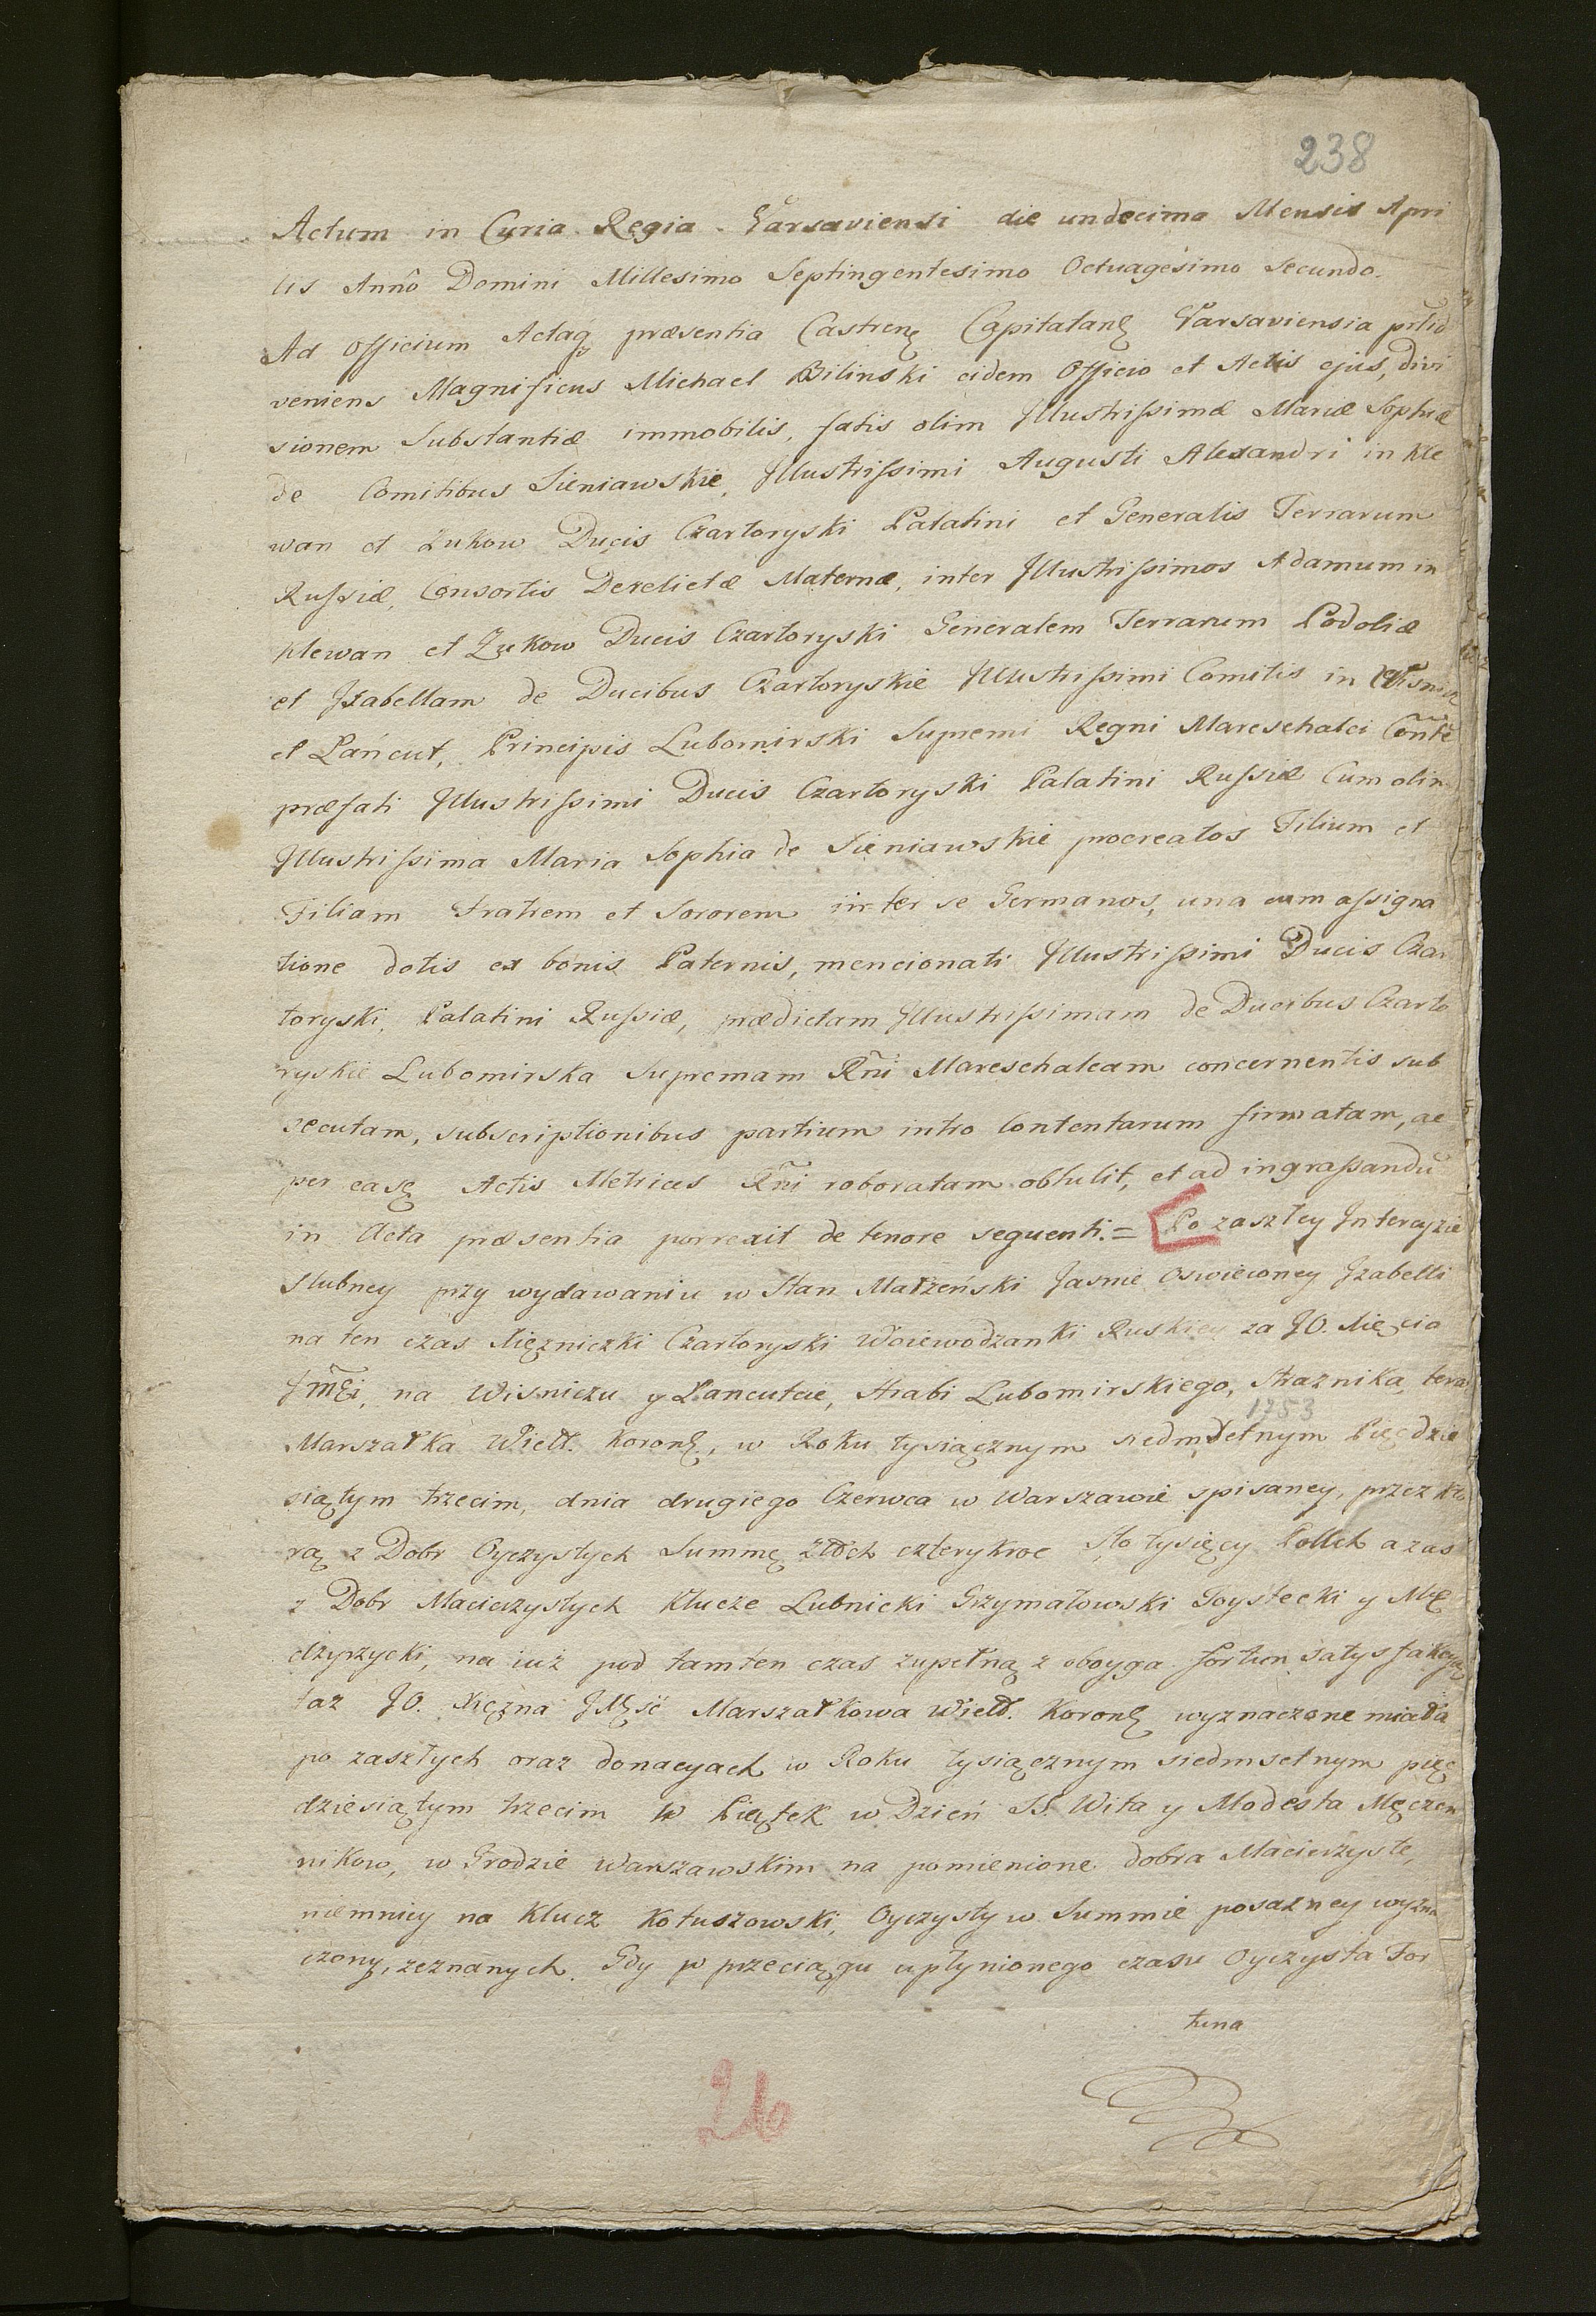 238
Actum in Curia Regia Varsaviensi die undecima Mensis Apri
lis Annô Domini Millesimo Septingentesimo Octuagesimo Secundo.
Ad Officium Actaq præsentia Castrenȩ Capitalanȩ Varsaviensia
veniens Magnificus Michael Bilinski eidem Officio et Actis ejus, divi
sionem Substantiæ immobilis, fatis olim Illustrissimæ Mariæ Sophiæ
de Comitibus Sieniawskie, Illustrissimi Augusti Alexandri in Kle
wan et Zukow Ducis Czartoryski Palatini et Generalis Terrarum
Russiæ, Consortis Derelictæ Maternæ, inter Illustrissimos Adamum in
Klewan et Zukow Ducis Czartoryski Generalem Terrarum Podoliæ
et Izabellam de Ducibus Czartoryskie Illustrissimi Comitis in Wisnicz
et Lańcut, Principis Lubomirski Supremi Regni Mareschalci
præfati Illustrissimi Ducis Czartoryski Palatini Russiæ Cum olim
Illustrissima Maria Sophia de Sieniawskie procreatos Filium et
Filiam Fratrem et Sororem inter se Germanos, una cum assigna
tione dotis ex bonis Paternis, mencionati Illustrissimi Ducis Czar
toryski, Palatini Russiæ, prædictam Illustrissimam de Ducibus Czarto
ryskie Lubomirska Supremam Rñi Mareschalcam concernentis sub
secutam, subscriptionibus partium intro Contentarum firmatam, ac
per easȩ Actis Metrices Rñi roboratam obtulit, et ad ingrassandũ
in Acta præsentia porrexit de tenore sequenti. = Po zaszłey Intercyzie
Slubney przy wydawaniu w Stan Małżeński Jasnie Oswieconey Izabelli
na ten czas Xiężniczki Czartoryski Woiewodzanki Ruskiey za JO. Xięcia
na Wisniczu y Lancutcie, Hrabi Lubomirskiego, Strażnika, tera
1753
Marszałka Wiell. Koronȩ, w Roku tysiącznym siedmsetnym Pięcdzie
siątym trzecim, dnia drugiego Czerwca w Warszawie spisaney, przez kto
rą z Dobr Oyczystych Summę Złłch czterykroc sto tysięcy Pollch a zas
z Dobr Macierzystych Klucze Lubnicki Grzymałowski Goystecki y Mię
dzyrzycki, na iuż pod tamten czas zupełną z oboyga fortun satysfakcyą
taż JO. Xiężna JMść Marszałkowa Wiell. Koronȩ wyznaczone miała
po zaszłych oraz donacyach w Roku tysiącznym siedmsetnym pięc
dziesiątym trzecim w Piątek w Dzień SS. Wita y Modesta Męczen
nikow, w Grodzie Warszawskim na pomienione dobra Macierzyste,
niemniey na Klucz Kotuszowski, Oyczysty w Summie posażney wyzna
czony, zeznanych. Gdy w przeciągu upłynionego czasu Oyczysta For
tuna
26